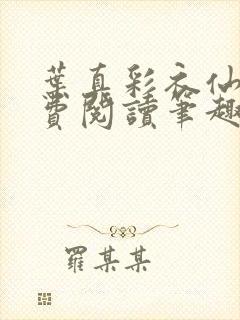 葉真彩衣仙
費閱讀筆趣
羅某某